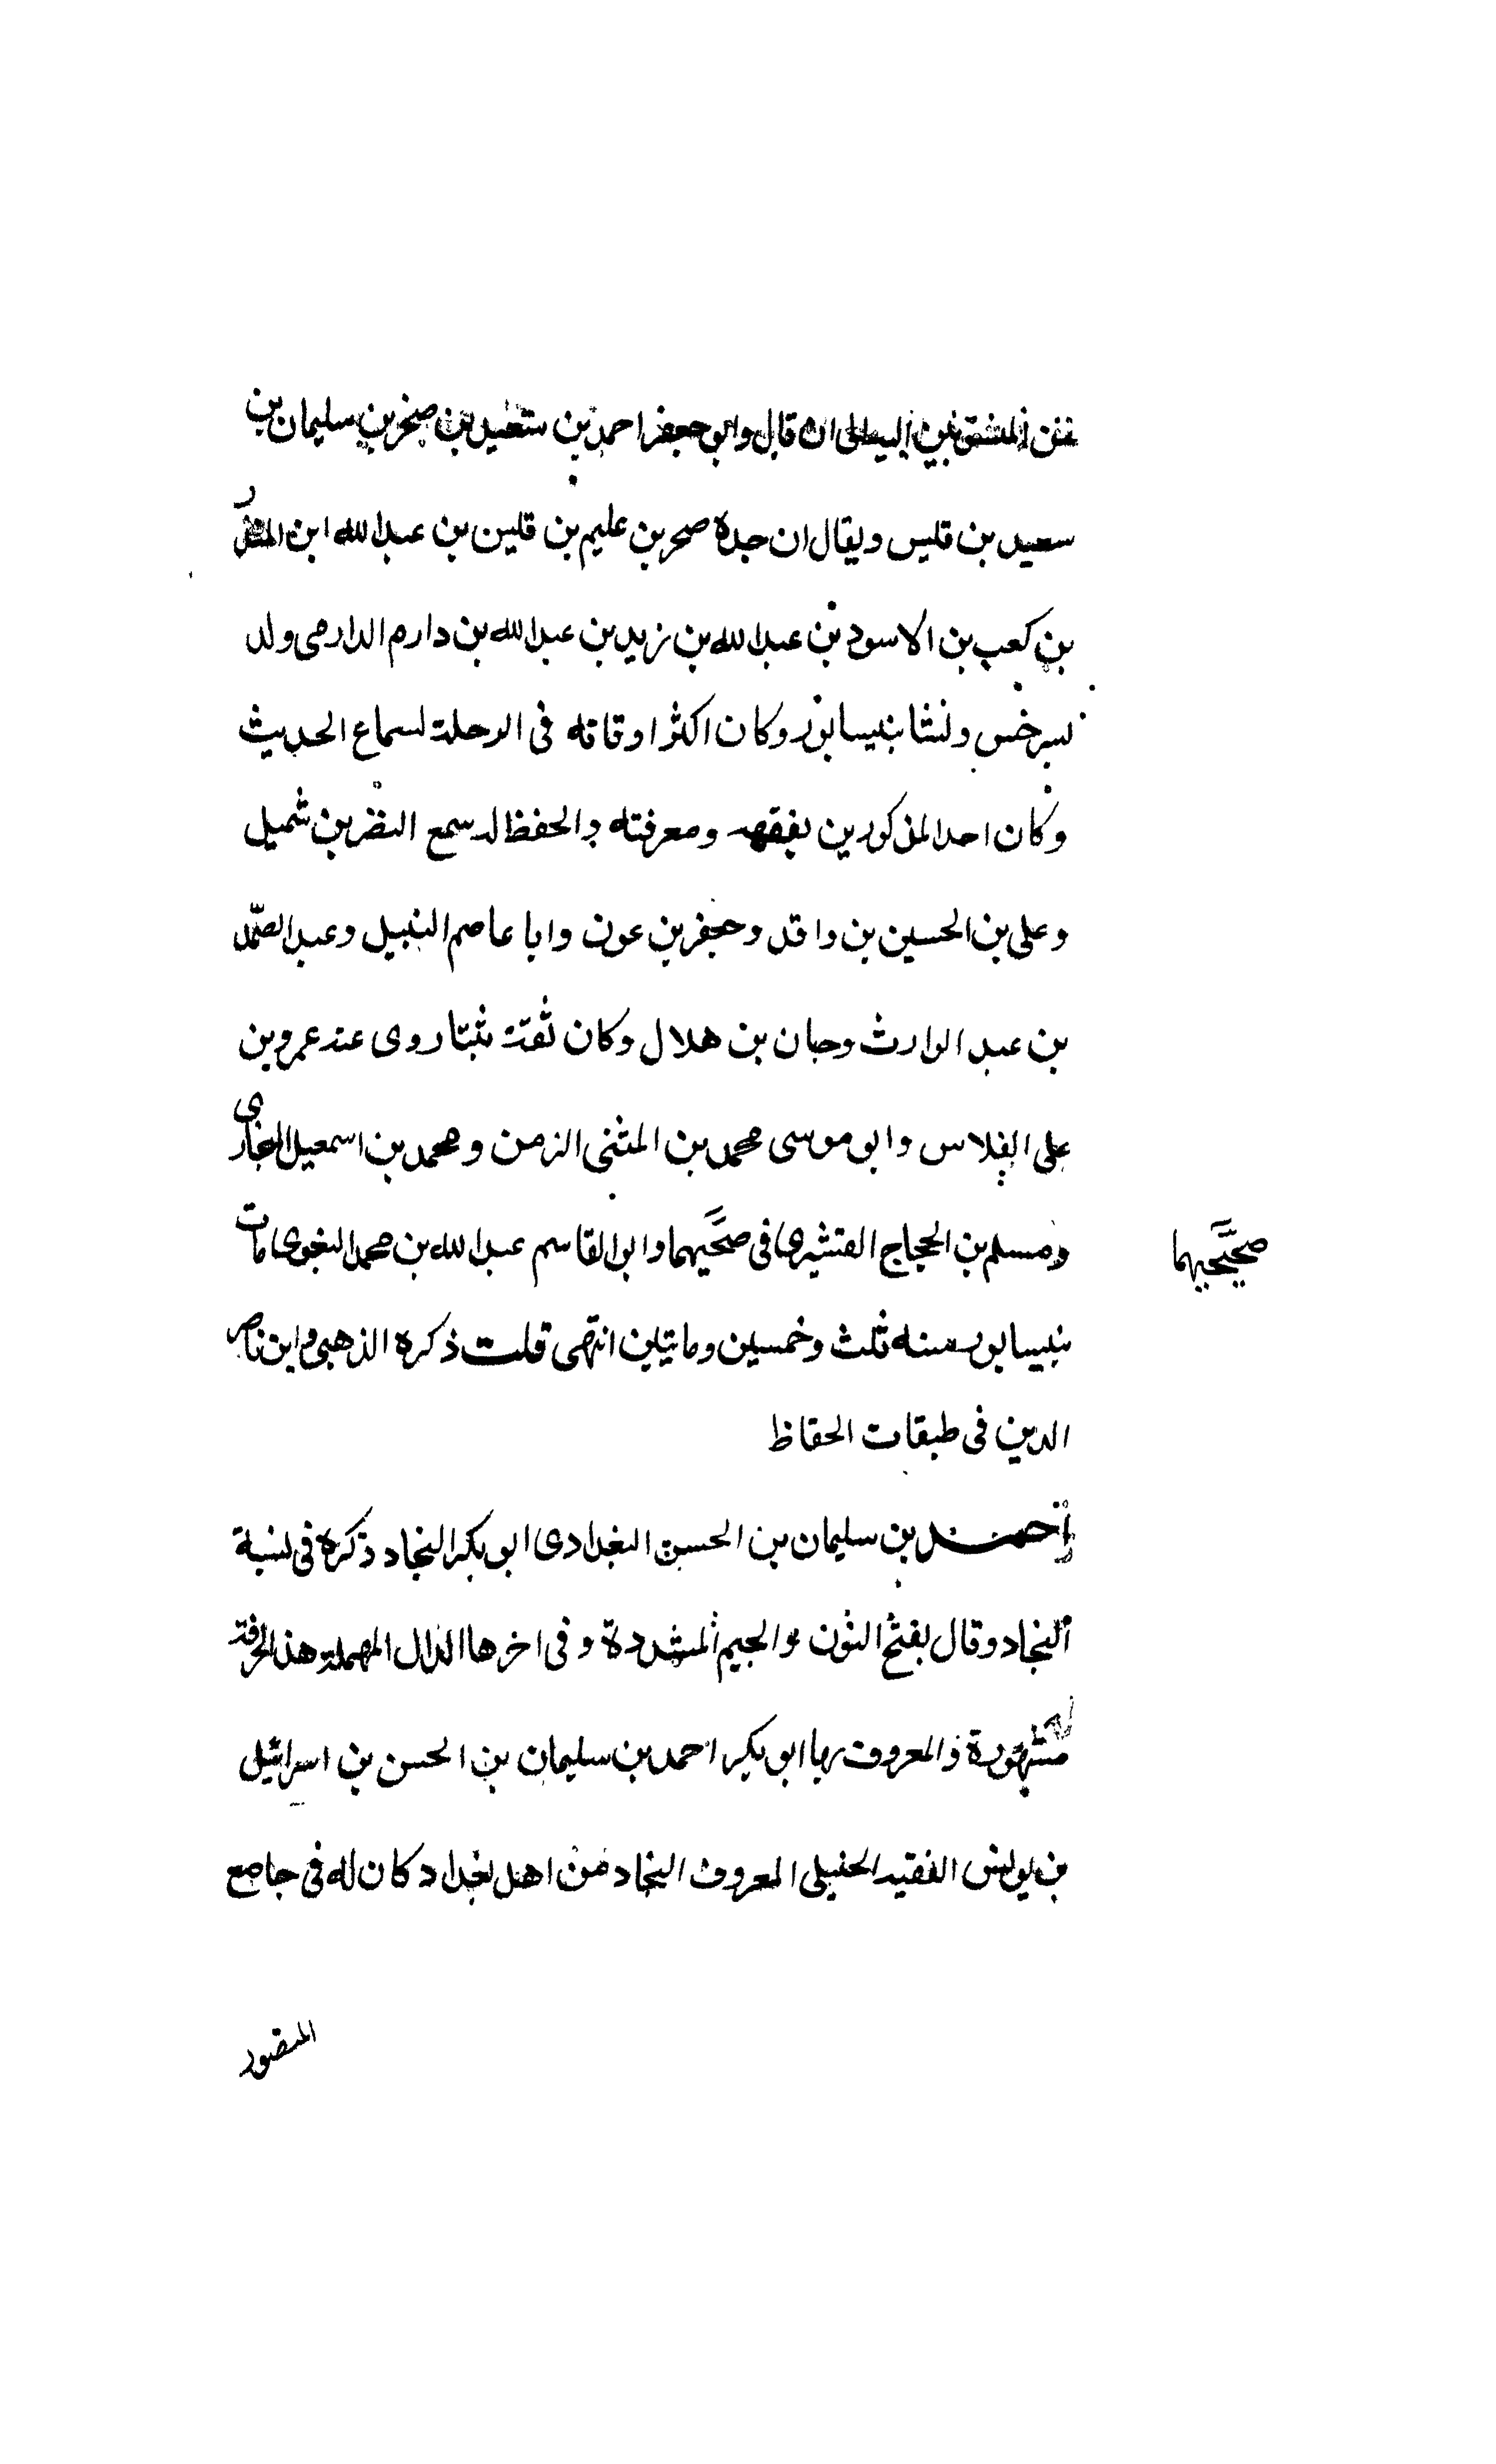 ان قال وابو جعفر احمد بن سعيد بن صخر بن سليمان بن
سعيد بن قليس ويقال ان جده صحر بن عليم بن قلين بن عبد الله ابن المنذر
بن كعب بن الاسود بن عبد الله بن زيد بن عبد الله بن دارم الدارمي ولد
بسرخس ونشا بنيسابور وكان اكثر اوقاته في الرحلة لسماع الحديث
وكان احد المذكورين بفقهه ومعرفته والحفظ له سمع النضر بن شميل
وعلى بن الحسين بن واقد وجعفر بن عون وابا عاصم النبيل وعبد الصّمد
بن عبد الوارث وحبان بن هلال وكان ثقة ثبتا روى عنه عمرو بن
على الفلاس وابو موسى محمد بن المثنى الزمن ومحمد بن اسمعيل البخارى
ومسلم بن الحجاج القشيرى فى صحّيهما وابو القاسم عبد الله بن محمد البغوى مات
صحيّحيهما
بنيسابور سنه ثلث وخمسين وماتيين انتهى قلت ذكره الذهبى وابن ناصر
الدين فى طبقات الحفاظ
احمد بن سليمان بن الحسن البغدادى ابو بكر النجاد ذكره فى نسبة
النجاد وقال بفتح النون والجيم المشددة وفى اخرها الدال المهملة هذه الحرفة
مشهورة والمعروف بها ابو بكر احمد بن سليمان بن الحسن بن اسرائيل
بن يونس الفقيه الحنبلى المعروف النجاد من اهل بغداد كان له فى جامع
المنصور